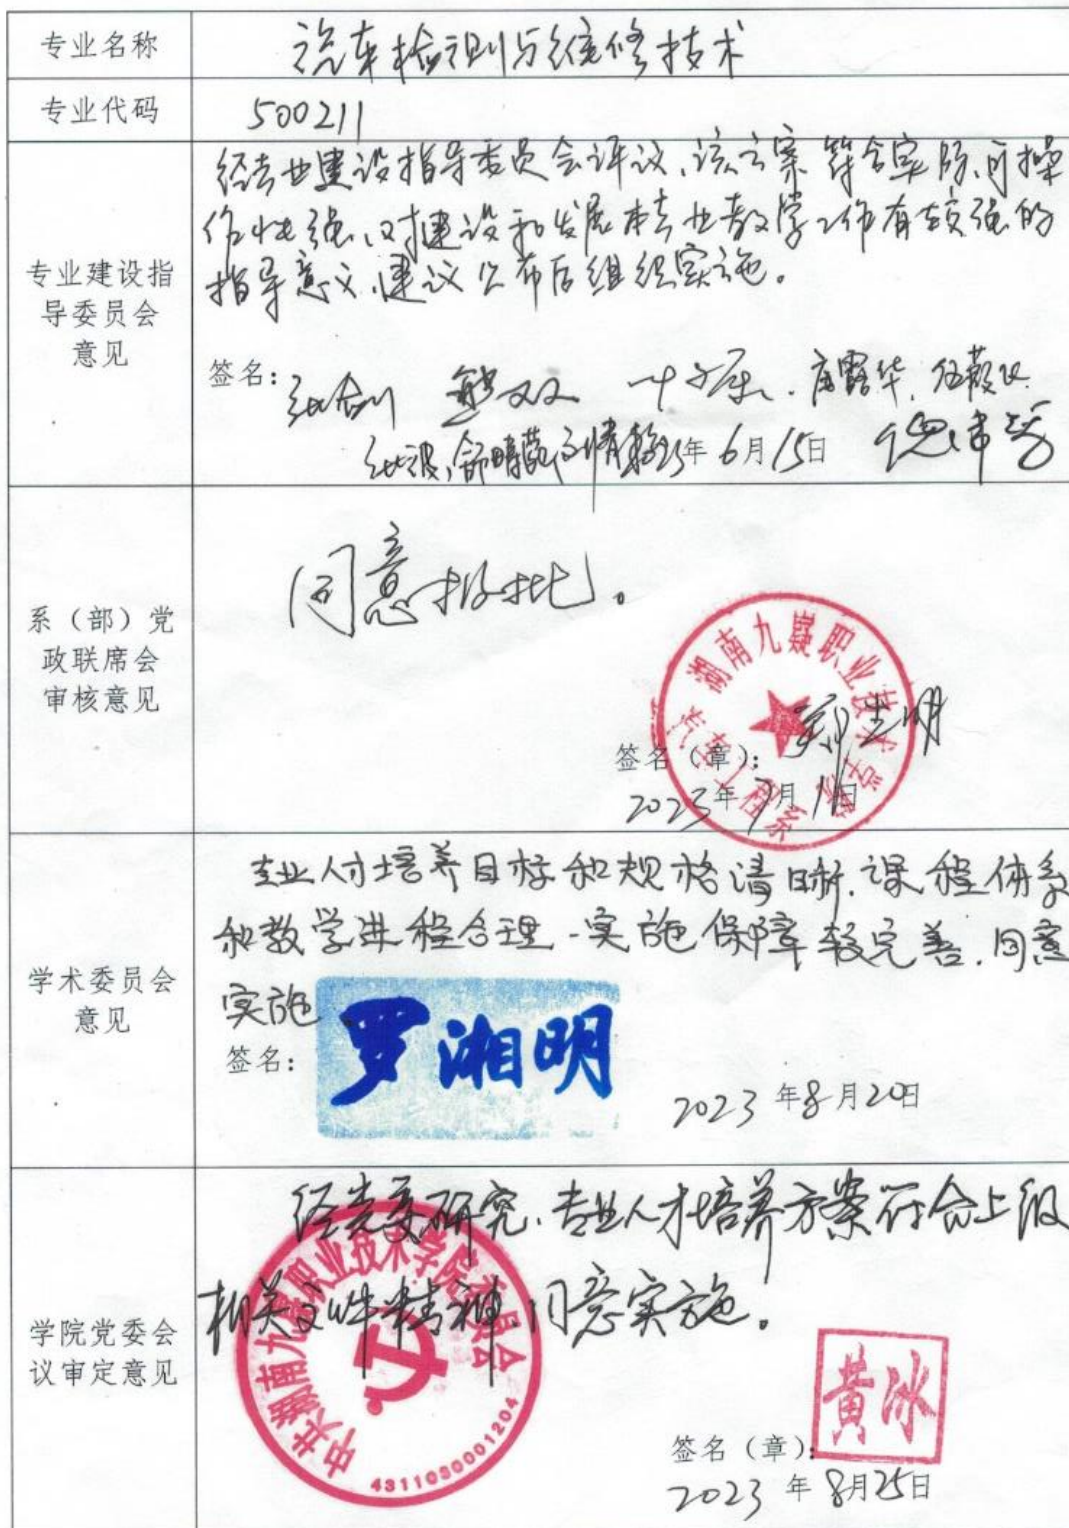 专业名称
汽车检测与维修技术
专业代码
500211
专业建设指
导委员会
意见
经专业建设指导委员会评议,该方案符合实际,可操
作性强,对建设和发展本专业教学工作有较强的
指导意义,建议公布后组织实施。
签名:
年6月15日
系(部)党
政联席会
审核意见
同意报批。
湖南九嶷职业技术学院
汽车工程系
签名(章):
2023年7月1日
学术委员会
意见
专业人才培养目标和规格清晰,课程体系
和教学进程合理,实施保障较完善,同意
实施
签名:
罗湘明
2023年8月20日
学院党委会
议审定意见
经党委研究,专业人才培养方案符合上级
相关文件精神,同意实施。
中共湖南九嶷职业技术学院委员会
4311030001204
黄冰
签名(章):
2023年8月25日